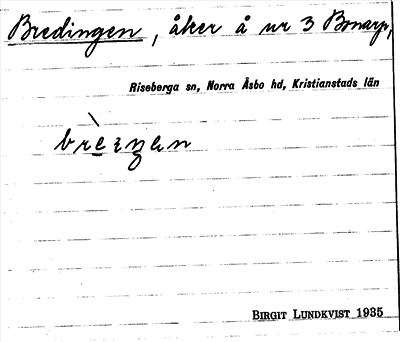 Bredingen, åker å nr 3 Bonarp,
Riseberga sn, Norra Åsbo hd, Kristianstads län
BIRGIT LUNDKVIST 1935